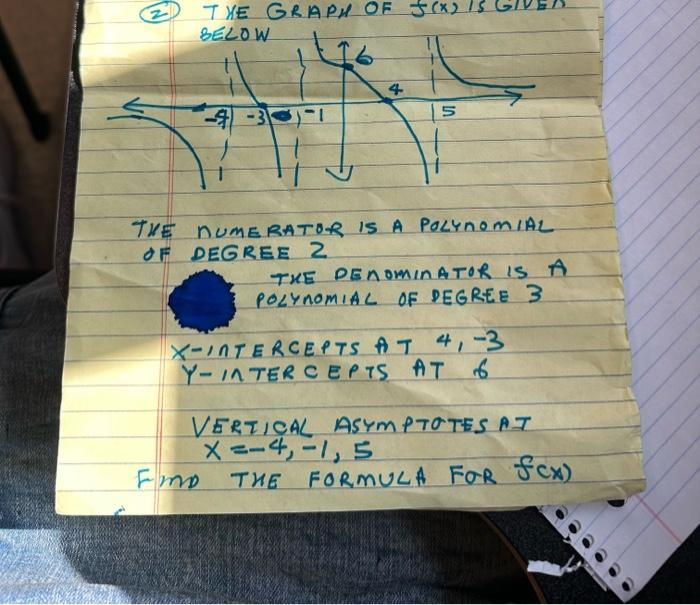 2 THE GRAPH OF f(x) IS GIVEN
BELOW
6
4
-4 -3 -1 5
THE NUMERATOR IS A POLYNOMIAL
OF DEGREE 2
THE DENOMINATOR IS A
POLYNOMIAL OF DEGREE 3
X-INTERCEPTS AT 4, -3
Y-INTERCEPTS AT 6
VERTICAL ASYMPTOTES AT
X = -4, -1, 5
FIND THE FORMULA FOR f(x)